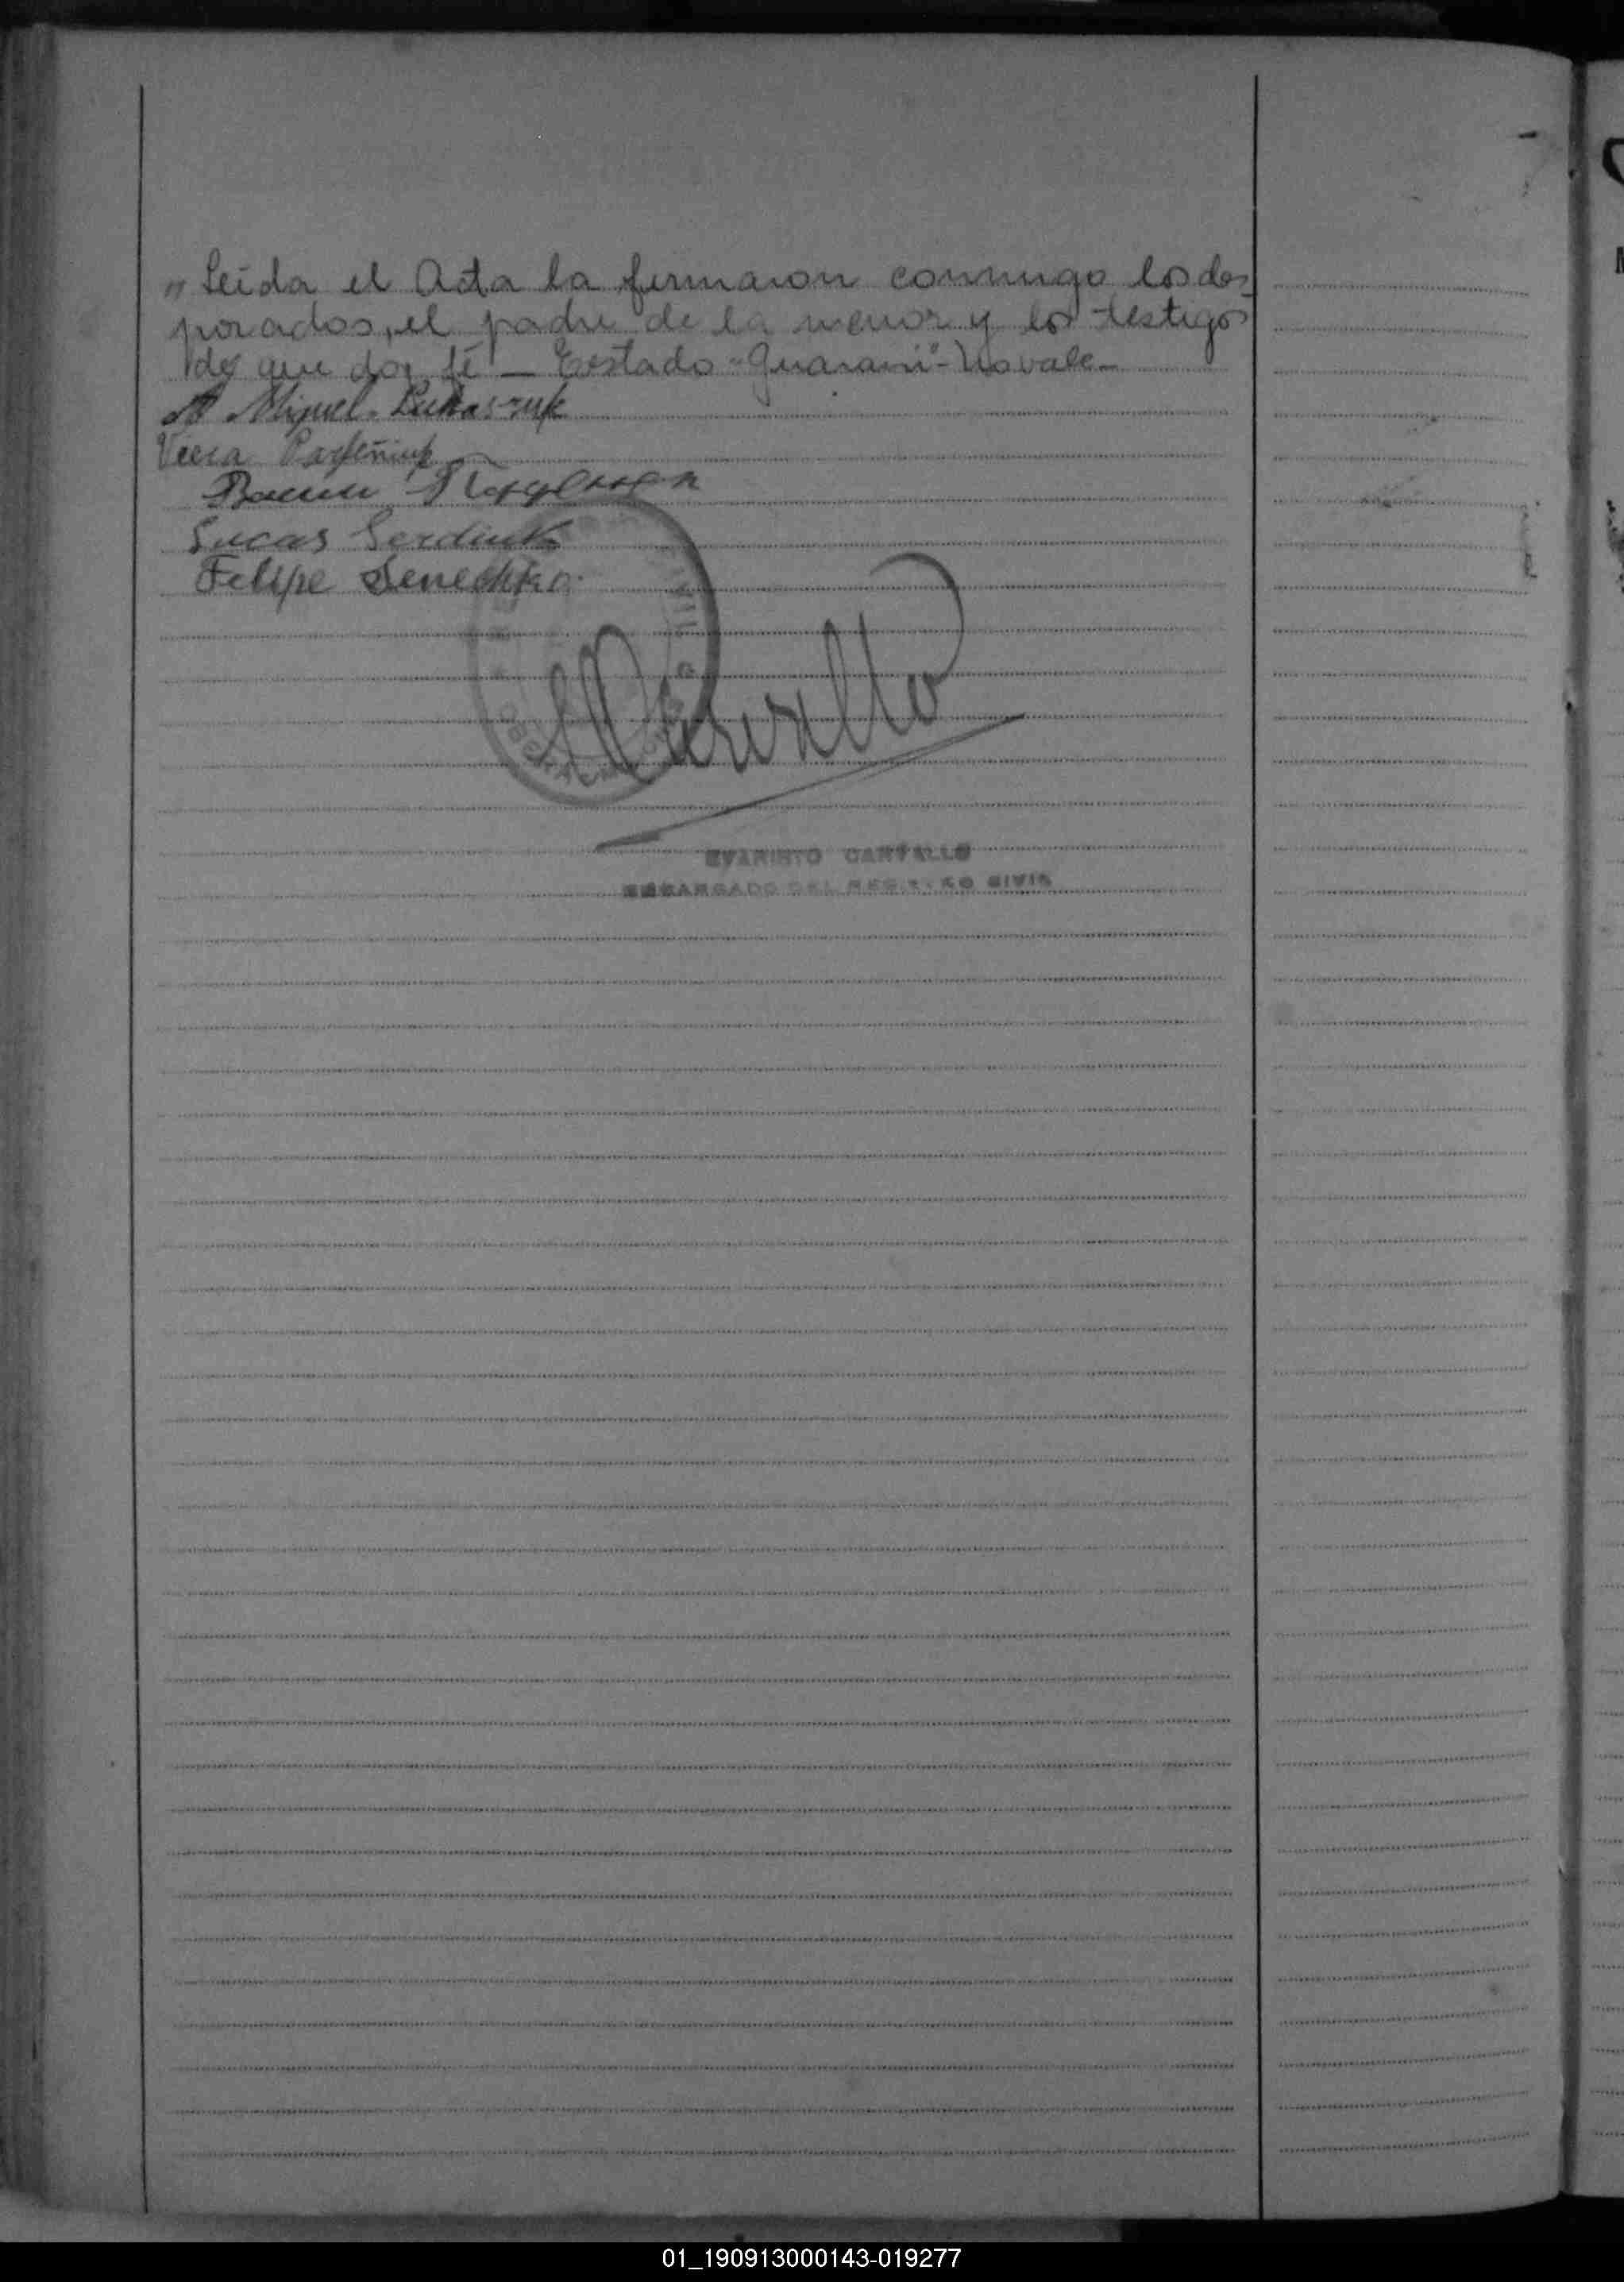 " Leida el Acta la firmaron conmigo los des
posados, el padre de la menor y los testigos
de que doy fé — Testado "Guarani" - No vale -
Miguel Lukaszuk
Viera Parfeniuk
Lucas Serdiuk
Felipe Senechko
OBERA
EVARISTO CARVALLO
ENCARGADO DEL REGISTRO CIVIL
01_190913000143-019277